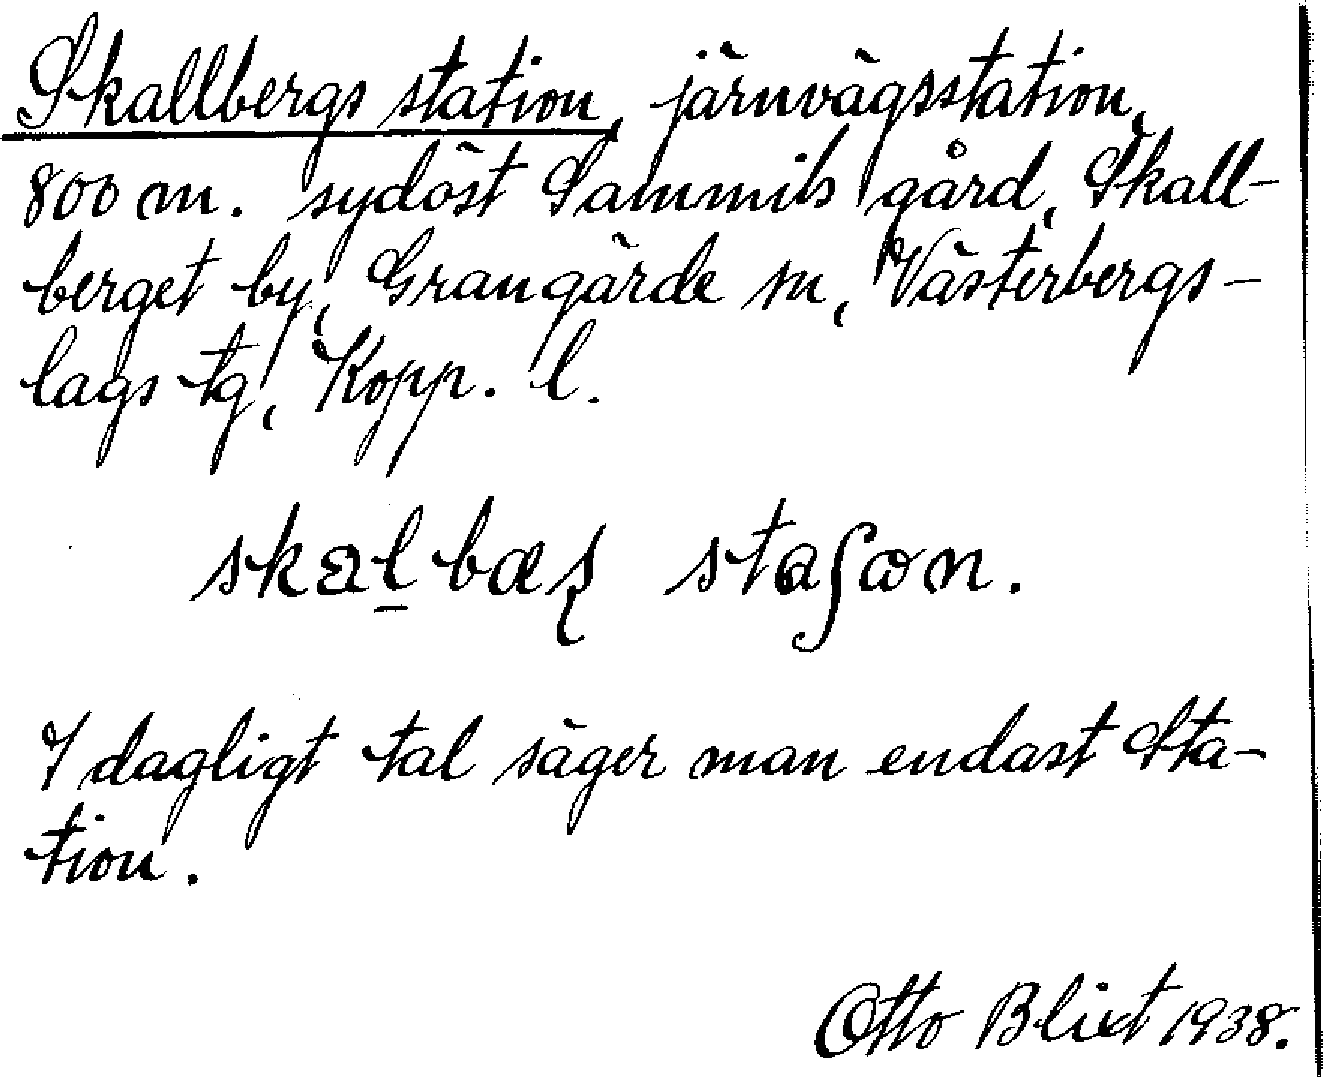 Skallbergs station, järnvägsstation,
800 m. sydöst Sammils gård, Skall-
berget by, Grangärde sn, Västerbergs-
lags tg, Kopp. l.
staʃɷn.
I dagligt tal säger man endast Sta-
tion.
Otto Blixt 1938.